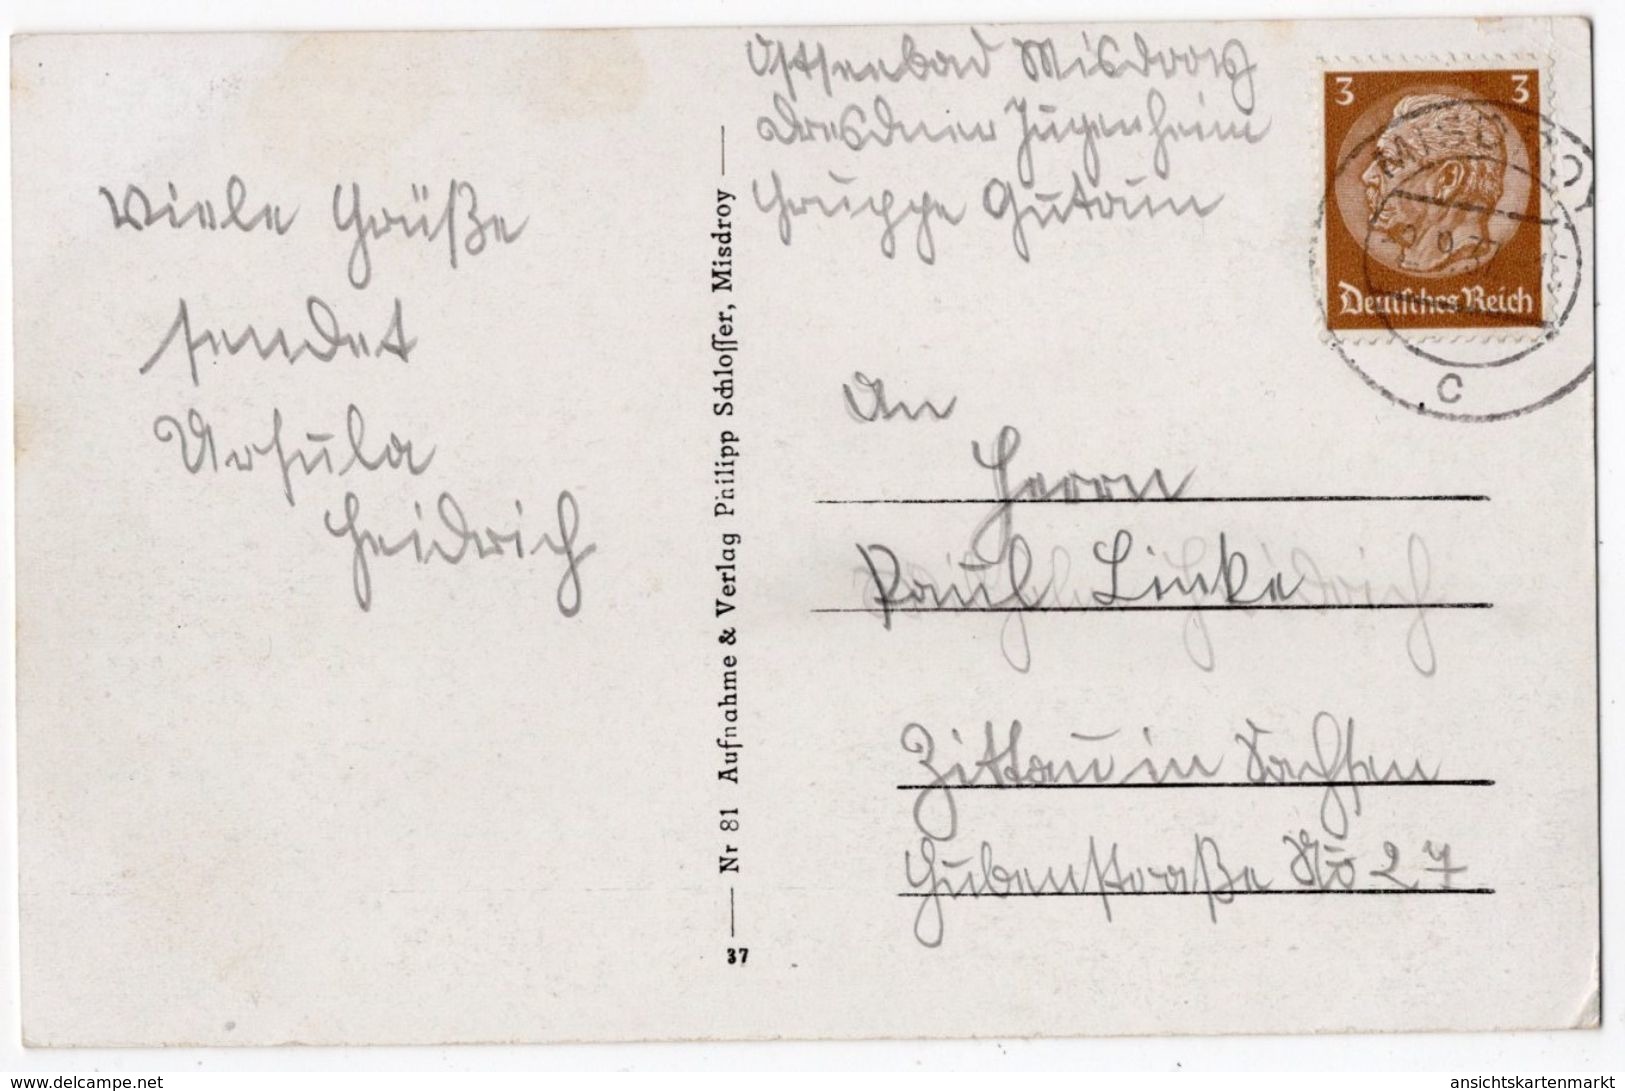 Viele Grüße
sendet
Ursula
Heidrich
Nr 81 Aufnahme & Verlag Philipp Schlosser, Misdroy
37
Ostseebad Misdroy
Dresdner Jugenheim
Gruppe
3 3
Deutsches Reich
MISDROY
c
An
Herrn
Paul Linke
Zittau in Sachsen
Gubenstraße No 27
www.delcampe.net
ansichtskartenmarkt